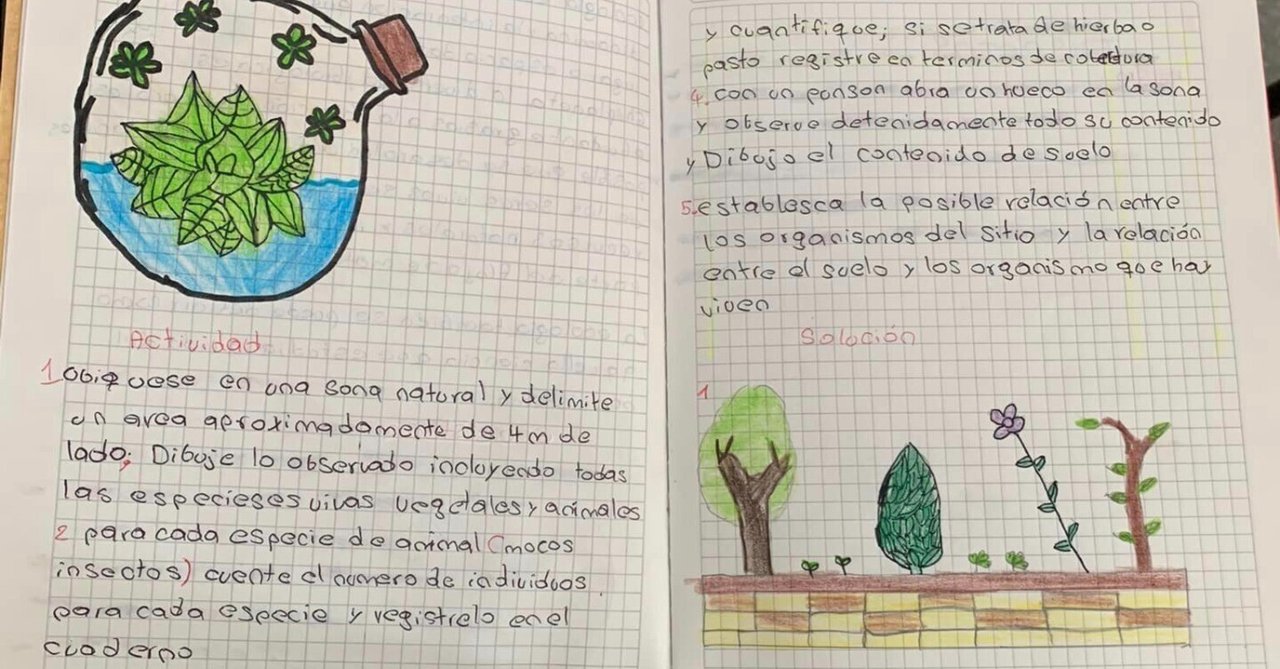 Actividad
1 Obiquese en una sona natural y delimite
un area aproximadamente de 4m de
lado; Dibuje lo observado incluyendo todas
las especieses vivas vegetales y animales
2 para cada especie de animal (mocos
insectos) cuente el numero de individuos
para cada especie y registrelo en el
cuaderno
y cuantifique; si se trata de hierba o
pasto registre en terminos de cobertura
4. con un ponson abra un hueco en la sona
y observe detenidamente todo su contenido
y Dibujo el contenido de suelo
5. establesca la posible relación entre
los organismos del sitio y la relación
entre el suelo y los organismo que hay
viven
Solución
1